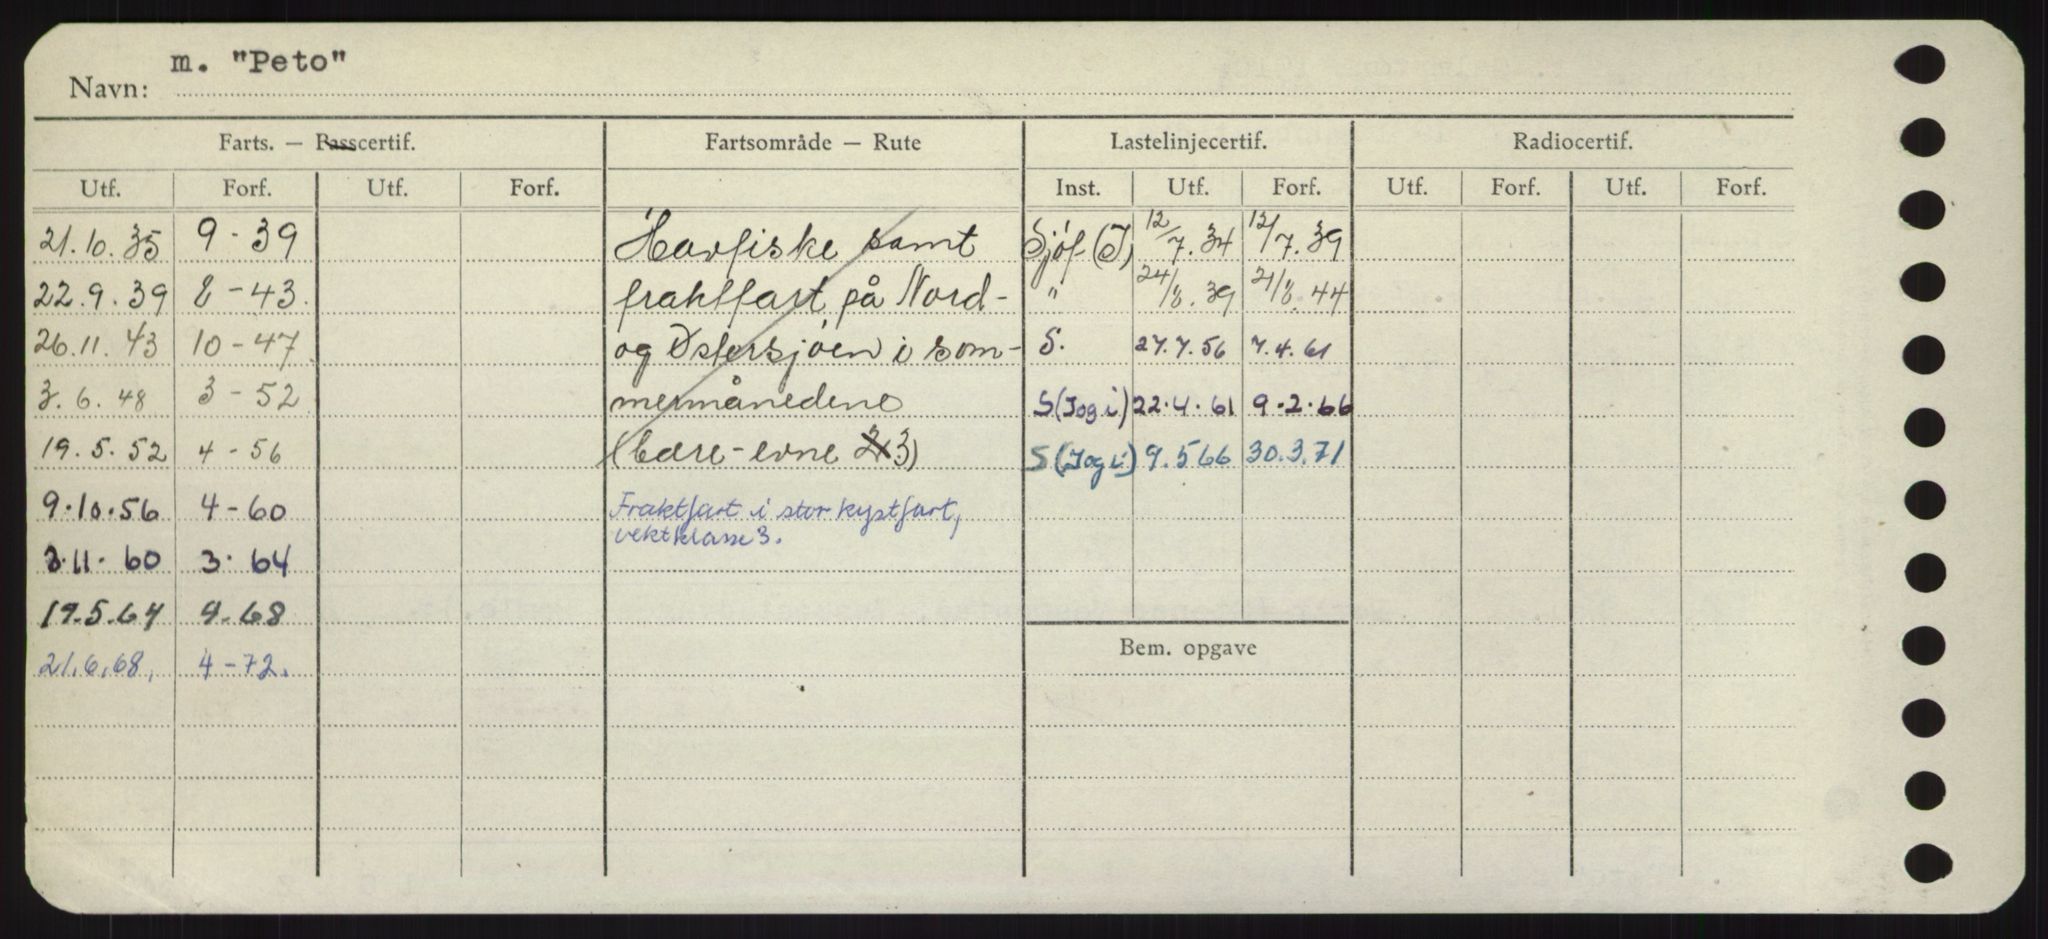 m. "Peto"
Navn:
Farts. — Passcertif. Fartsområde — Rute Lastelinjecertif. Radiocertif.
Utf. Forf. Utf. Forf. Inst. Utf. Forf. Utf. Forf. Utf. Forf.
21.10.35 9-39 Havfiske samt Sjöf (I) 12/7.34 12/7.39
22.9.39 8-43. fraktfart på Nord- " 24/8.39 21/8.44
26.11.43 10-47 og Østersjöen i som- S. 27.7.56 7.4.61
3.6.48 3-52 mermånedene S (I og i) 22.4.61 9.2.66
19.5.52 4-56 (bære-evne 3) S (I og i) 9.5 66 30.3.71
9.10.56 4-60 Fraktfart i stor kystfart,
vektklasse 3.
3.11.60 3.64
19.5.64 4.68
21.6.68. 4-72.
Bem. opgave